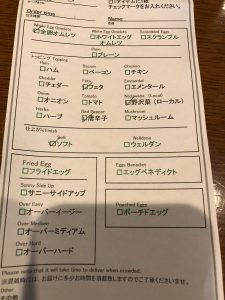 Order time
Name
チェックマークをお入れください。
Whole Egg Omelets
☑全卵オムレツ
White Egg Omelets
□ホワイトエッグオムレツ
Scrambled Eggs
□スクランブル
Plain
□プレーン
トッピング Topping
Ham
□ハム
Bacon
□ベーコン
Chicken
□チキン
Cheddar
□チェダー
Fetta
☑フェタ
Emmental
□エメンタール
Onion
□オニオン
Tomato
□トマト
Nozawana (Local)
☑野沢菜（ローカル）
Herbs
□ハーブ
Red Pepper
☑唐辛子
Mushroom
□マッシュルーム
仕上がり Finish
Soft
☑ソフト
Welldone
□ウェルダン
Fried Egg
□フライドエッグ
Eggs Benedict
□エッグベネディクト
Sunny Side Up
□サニーサイドアップ
Over Easy
□オーバーイージー
Poached Eggs
□ポーチドエッグ
Over Medium
□オーバーミディアム
Over Hard
□オーバーハード
Please note that it will take time to deliver when crowded.
※混雑時には、お届けに多少お時間を頂戴致しますのでご了承くださいませ。
Other
その他